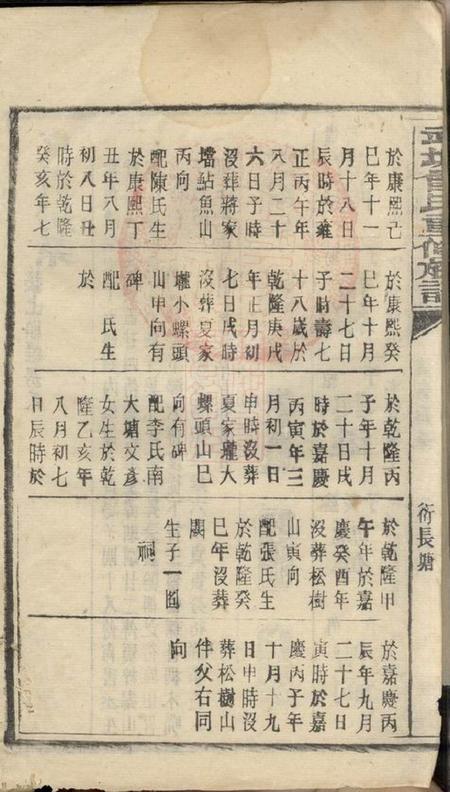 於康熙己
巳年十一
月十八日
辰時於雍
正丙午年
八月二十
六日子時
沒葬蔣家
壋鮎魚山
丙向
配陳氏生
於康熙丁
丑年八月
初八日丑
時於乾隆
癸亥年七
於康熙癸
巳年十月
二十七日
子時壽七
十八歲於
乾隆庚戌
年正月初
七日戌時
沒葬夏家
壠小螺頭
山甲向有
碑
配 氏生
於
於乾隆丙
子年十月
二十日戌
時於嘉慶
丙寅年三
月初一日
申時沒葬
夏家壠大
螺頭山巳
向有碑
配李氏南
大塘文彥
女生於乾
隆乙亥年
八月初七
日辰時於
於乾隆甲
午年於嘉
慶癸酉年
沒葬松樹
山寅向
配張氏生
於乾隆癸
巳年沒葬
闕
生子一囿
祠
於嘉慶丙
辰年九月
二十七日
寅時於嘉
慶丙子年
十月十九
日申時沒
葬松樹山
伴父右同
向
衍長塘